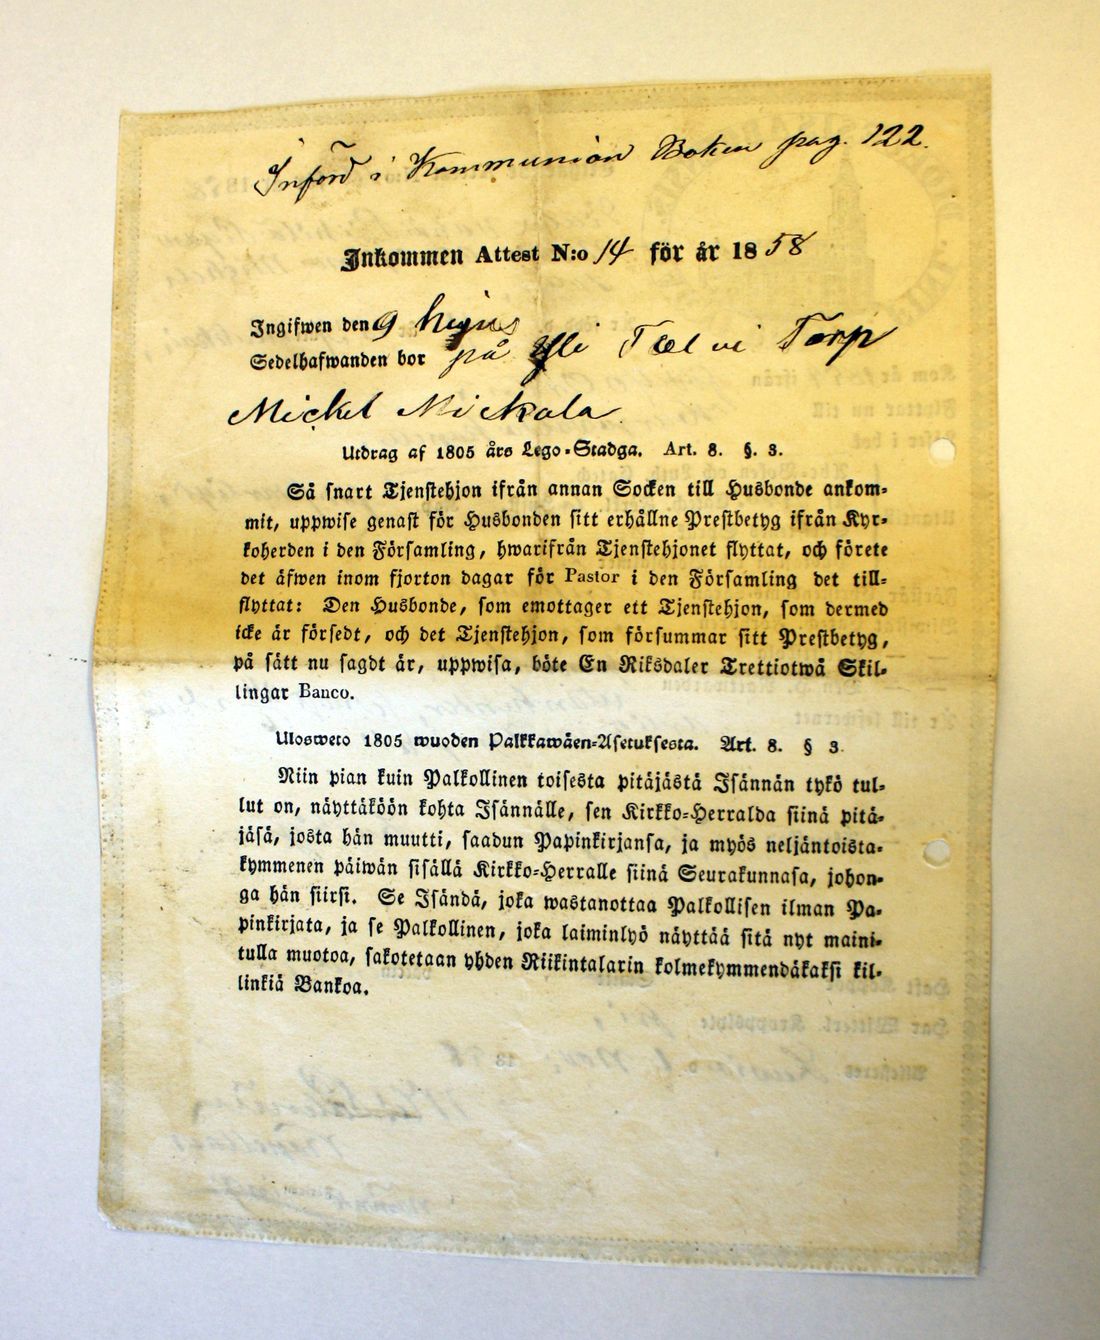 Införd i Kommunion Boken pag. 122.
Inkommen Attest N:o 14 för år 1858
Ingifwen den 9
Sedelhafwanden bor på Torp
Mickel Mickola
Utdrag af 1805 års Lego-Stadga. Art. 8. §. 3.
Så snart Tjenstehjon ifrån annan Socken till Husbonde ankom-
mit, uppwise genast för Husbonden sitt erhållne Prestbetyg ifrån Kyr-
koherden i den Församling, hwarifrån Tjenstehjonet flyttat, och förete
det äfwen inom fjorton dagar för Pastor i den Församling det till-
flyttat: Den Husbonde, som emottager ett Tjenstehjon, som dermed
icke är försedt, och det Tjenstehjon, som försummar sitt Prestbetyg,
på sätt nu sagdt är, uppwisa, böte En Riksdaler Trettiotwå Skil-
lingar Banco.
Ulosweto 1805 wuoden Palkkawäen-Asetuksesta. Art. 8. § 3.
Niin pian kuin Palkollinen toisesta pitäjästä Isännän tykö tul-
lut on, näyttäköön kohta Isännälle, sen Kirkko-Herralda siinä pitä-
jäsä, josta hän muutti, saadun Papinkirjansa, ja myös neljäntoista-
kymmenen päiwän sisällä Kirkko-Herralle siinä Seurakunnasa, johon-
ga hän siirsi. Se Isändä, joka wastanottaa Palkollisen ilman Pa-
pinkirjata, ja se Palkollinen, joka laiminlyö näyttää sitä nyt maini-
tulla muotoa, sakotetaan yhden Riikintalarin kolmekymmendäkaksi kil-
linkiä Bankoa.